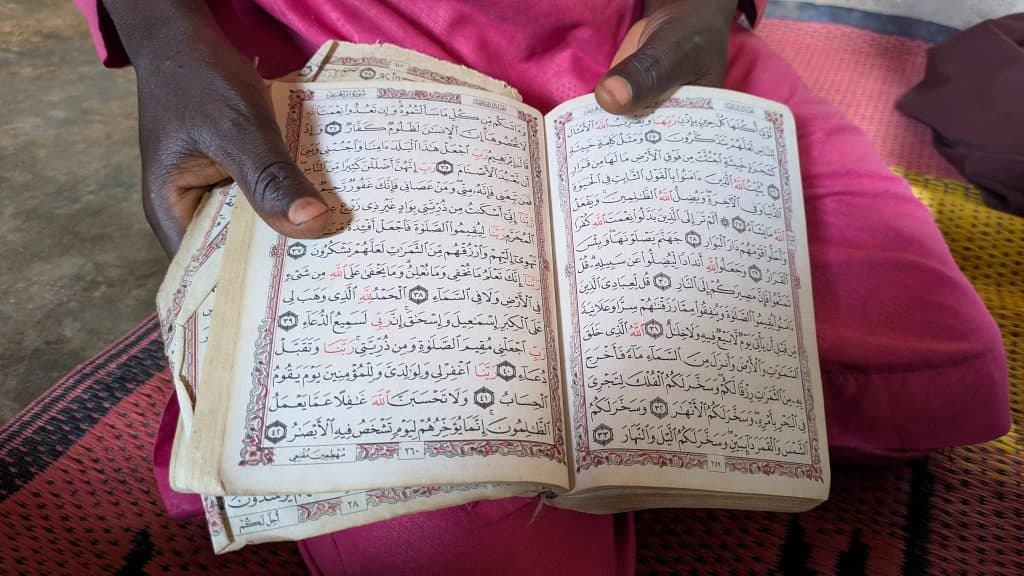 تُؤْتِىٓ أُكُلَهَا كُلَّ حِينٍۭ بِإِذْنِ رَبِّهَا ۗ ٱللَّهُ ٱلْأَمْثَالَ
لِلنَّاسِ لَعَلَّهُمْ يَتَذَكَّرُونَ ٢٥ وَمَثَلُ كَلِمَةٍ خَبِيثَةٍ
كَشَجَرَةٍ خَبِيثَةٍ ٱجْتُثَّتْ مِن فَوْقِ ٱلْأَرْضِ مَا لَهَا مِن قَرَارٍ
٢٦ يُثَبِّتُ ٱللَّهُ ٱلَّذِينَ ءَامَنُوا۟ بِٱلْقَوْلِ ٱلثَّابِتِ فِى ٱلْحَيَوٰةِ
ٱلدُّنْيَا وَفِى ٱلْءَاخِرَةِ ۖ وَيُضِلُّ ٱللَّهُ ٱلظَّٰلِمِينَ ۚ وَيَفْعَلُ
ٱللَّهُ مَا يَشَآءُ ٢٧ أَلَمْ تَرَ إِلَى ٱلَّذِينَ بَدَّلُوا۟ نِعْمَتَ ٱللَّهِ كُفْرًا
وَأَحَلُّوا۟ قَوْمَهُمْ دَارَ ٱلْبَوَارِ ٢٨ جَهَنَّمَ يَصْلَوْنَهَا ۖ وَبِئْسَ
ٱلْقَرَارُ ٢٩ وَجَعَلُوا۟ لِلَّهِ أَندَادًا لِّيُضِلُّوا۟ عَن سَبِيلِهِۦ ۗ قُلْ
تَمَتَّعُوا۟ فَإِنَّ مَصِيرَكُمْ إِلَى ٱلنَّارِ ٣٠ قُل لِّعِبَادِىَ ٱلَّذِينَ
ءَامَنُوا۟ يُقِيمُوا۟ ٱلصَّلَوٰةَ وَيُنفِقُوا۟ مِمَّا رَزَقْنَٰهُمْ سِرًّا وَعَلَانِيَةً
مِّن قَبْلِ أَن يَأْتِىَ يَوْمٌ لَّا بَيْعٌ فِيهِ وَلَا خِلَٰلٌ ٣١ ٱللَّهُ ٱلَّذِى خَلَقَ
ٱلسَّمَٰوَٰتِ وَٱلْأَرْضَ وَأَنزَلَ مِنَ ٱلسَّمَآءِ مَآءً فَأَخْرَجَ
بِهِۦ مِنَ ٱلثَّمَرَٰتِ رِزْقًا لَّكُمْ ۖ وَسَخَّرَ لَكُمُ ٱلْفُلْكَ لِتَجْرِىَ
فِى ٱلْبَحْرِ بِأَمْرِهِۦ ۖ وَسَخَّرَ لَكُمُ ٱلْأَنْهَٰرَ ٣٢ وَسَخَّرَ لَكُمُ
ٱلشَّمْسَ وَٱلْقَمَرَ دَآئِبَيْنِ ۖ وَسَخَّرَ لَكُمُ ٱلَّيْلَ وَٱلنَّهَارَ ٣٣
٢٥٩
سُورَةُ إِبْرَاهِيمَ
وَءَاتَىٰكُم مِّن كُلِّ مَا سَأَلْتُمُوهُ ۚ وَإِن تَعُدُّوا۟ نِعْمَتَ
ٱللَّهِ لَا تُحْصُوهَآ ۗ إِنَّ ٱلْإِنسَٰنَ لَظَلُومٌ كَفَّارٌ ٣٤ وَإِذْ
قَالَ إِبْرَٰهِيمُ رَبِّ ٱجْعَلْ هَٰذَا ٱلْبَلَدَ ءَامِنًا وَٱجْنُبْنِى وَبَنِىَّ
أَن نَّعْبُدَ ٱلْأَصْنَامَ ٣٥ رَبِّ إِنَّهُنَّ أَضْلَلْنَ كَثِيرًا مِّنَ ٱلنَّاسِ
فَمَن تَبِعَنِى فَإِنَّهُۥ مِنِّى ۖ وَمَنْ عَصَانِى فَإِنَّكَ غَفُورٌ
رَّبَّنَآ إِنِّىٓ أَسْكَنتُ مِن ذُرِّيَّتِى بِوَادٍ غَيْرِ ذِى زَرْعٍ عِندَ
ٱلْمُحَرَّمِ رَبَّنَا لِيُقِيمُوا۟ ٱلصَّلَوٰةَ فَٱجْعَلْ أَفْـِٔدَةً
تَهْوِىٓ إِلَيْهِمْ وَٱرْزُقْهُم مِّنَ ٱلثَّمَرَٰتِ لَعَلَّهُمْ يَشْكُرُونَ ٣٧
رَبَّنَآ إِنَّكَ تَعْلَمُ مَا نُخْفِى وَمَا نُعْلِنُ ۗ وَمَا يَخْفَىٰ عَلَى ٱللَّهِ مِن شَىْءٍ
فِى ٱلْأَرْضِ وَلَا فِى ٱلسَّمَآءِ ٣٨ ٱلْحَمْدُ لِلَّهِ ٱلَّذِى وَهَبَ لِى
عَلَى ٱلْكِبَرِ إِسْمَٰعِيلَ وَإِسْحَٰقَ ۚ إِنَّ رَبِّى لَسَمِيعُ ٱلدُّعَآءِ ٣٩
رَبِّ ٱجْعَلْنِى مُقِيمَ ٱلصَّلَوٰةِ وَمِن ذُرِّيَّتِى ۚ رَبَّنَا وَتَقَبَّلْ
دُعَآءِ ٤٠ رَبَّنَا ٱغْفِرْ لِى وَلِوَٰلِدَىَّ وَلِلْمُؤْمِنِينَ يَوْمَ يَقُومُ
ٱلْحِسَابُ ٤١ وَلَا تَحْسَبَنَّ ٱللَّهَ غَٰفِلًا عَمَّا يَعْمَلُ
ٱلظَّٰلِمُونَ ۚ إِنَّمَا يُؤَخِّرُهُمْ لِيَوْمٍ تَشْخَصُ فِيهِ ٱلْأَبْصَٰرُ ٤٢
٢٦٠
مُهْطِعِينَ مُقْنِعِى